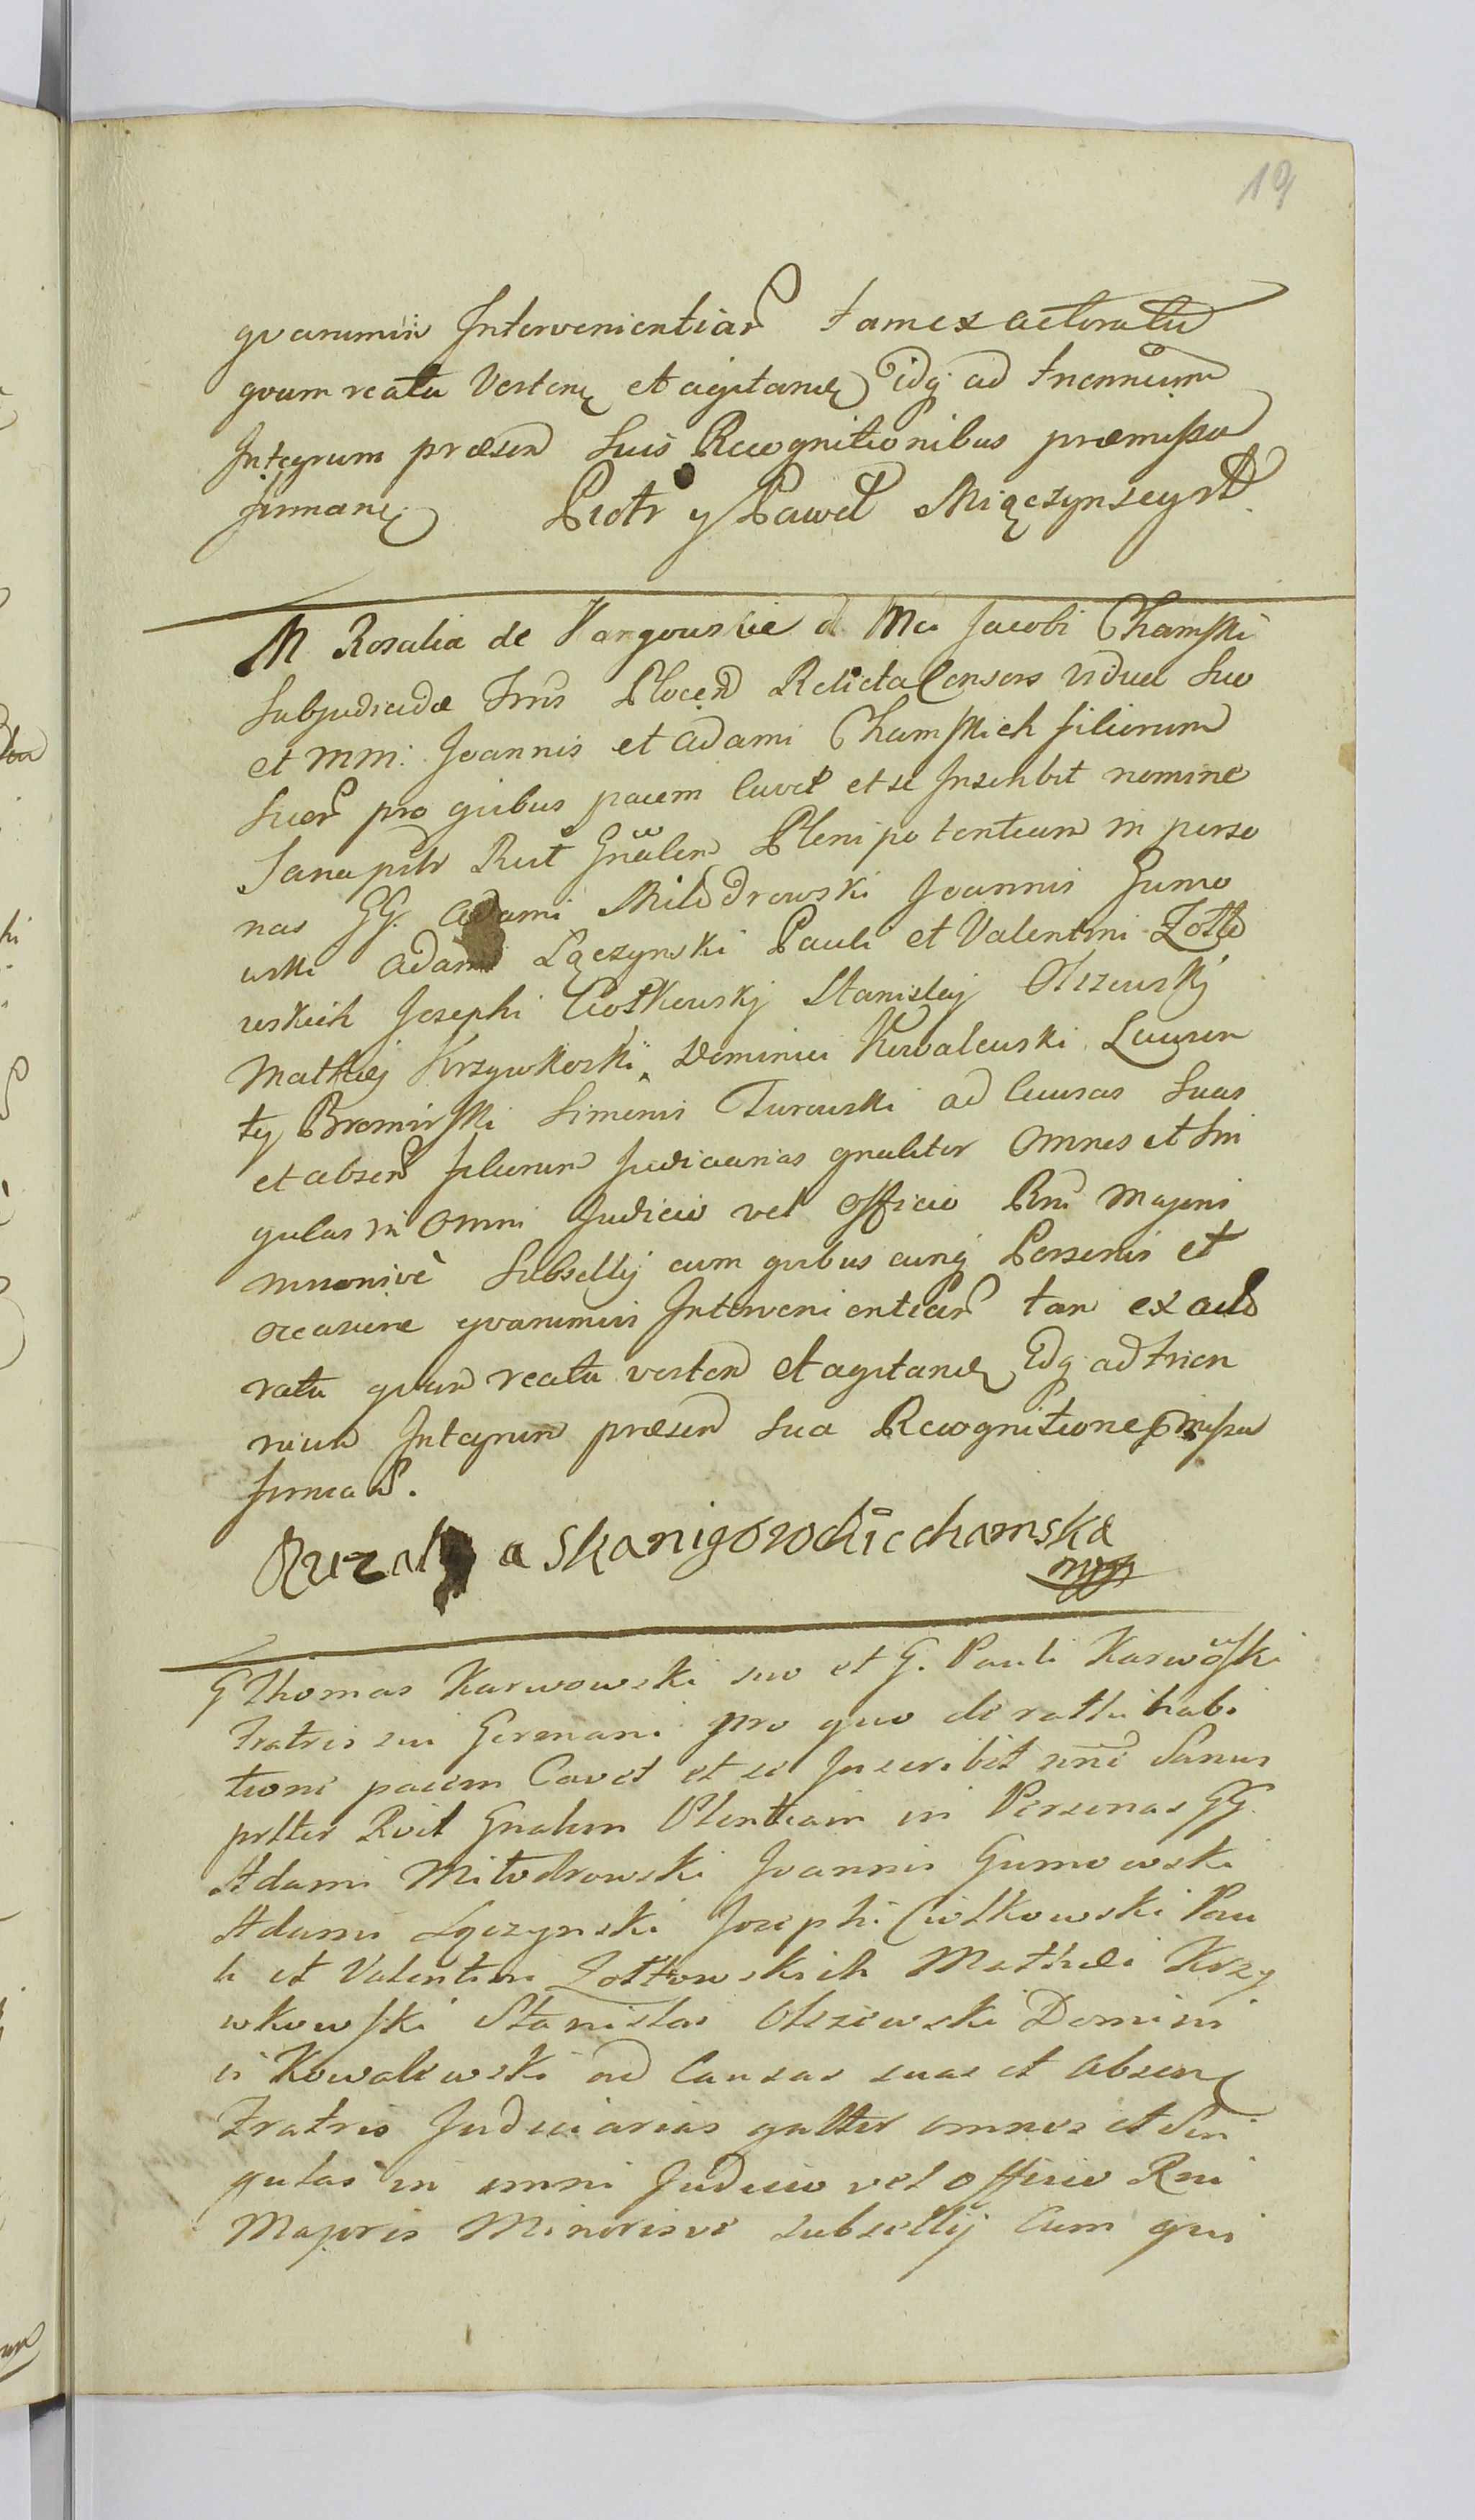 19
qvarumvis Intervenientiar tam ex actoratu
qvam reatu Verten et agitand Idq ad Triennium
Integrum præsen Suis Recognitionibus præmissa
firmant
Piotr y Paweł Miączynscy
M Rosalia de Kangowskie M Jacobi Chamski
Subjudicidæ Trris Plocen Relicta Consors vidua Suo
et MM: Joannis et Adami Chamskich filiorum
Suor pro quibus pacem Cavet et se Inscribit nomine
Sana pstr Rect Gnalem Plenipotentiam in perso
nas GG. Adami Milodrowski Joannis Gumo
wski Adami Łączynski Pauli et Valentini Zotto
wskich Josephi Ciołkowskj Stanislaj Olszewskj
Mathæj Krzywkoski Dominici Kowalewski Lauren
tij Bromirski Simonis Turowski ad Causas Suas
et absen filiorum Judiciarias gnaliter Omnes et Sin
gulas in Omni Judicio vel Officio Rni Majoris
minorisvè Subsellij cum quibus cunq Personis et
occasione qvarumvis Intervenientiar tam ex acto
ratu qvam reatu verten et agitand Idq ad trien
nium Integrum præsen Sua Recognitione pmissa
firmat.
a Skanigorodzic chamska
mpp
G Thomas Karwowski suo et G. Pauli Karwowski
Fratris sui Germani pro quo de rathi habi
tione pacem Cavet et se Inscribit nne Sanus
pstter Rcit Gnalem Plentiam in Personas GG.
Adami Miłodrowski Joannis Gumowski
Adami Łączynski Josephi Ciołkowski Pau
li et Valentini Zołtowskich Mathæi Krzy
wkowski Stanislai Olszewski Domini
ci Kowalewski ad Causas suas et absen
Fratris Judiciarias gnltter omnes et Sin
gulas in omni Judicio vel officio Rni
Majoris Minorisve subsellij Cum qui